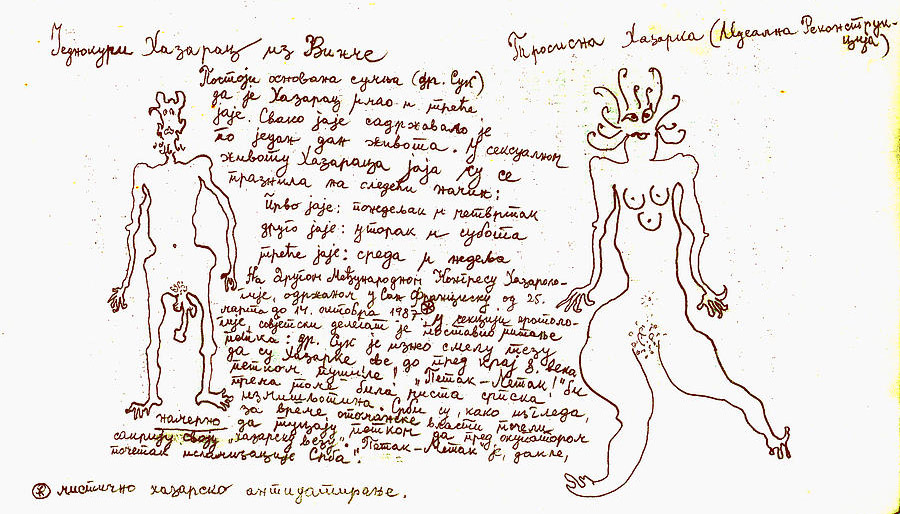 Једнокури Хазарац из Винче
Тросисна Хазарка (Идеална Реконструк-
ција)
Постоји основана сумња (др. Сук)
да је Хазарац имао и треће
јаје. Свако јаје садржавало је
по један дан живота. У сексуалном
животу Хазараца јаја су се
празнила на следећи начин:
Прво јаје: понедељак и четвртак
друго јаје: уторак и субота
треће јаје: среда и недеља
На другом Међународном Конгресу Хазароло-
гије, одржаном у Сан Франциску од 25.
марта до 14. октобра 1987 ⊛ У секцији еротоло-
гије, совјетски делегат је поставио питање
петка: др. Сук је изнео смелу тезу
да су Хазарке све до пред крај 8. века
петком пушиле! "Петак-Метак!" би
према томе била чиста српска
измишљотина. Срби су, како изгледа,
за време отоманске власти почели
намерно да петком да пред окупатором
сакрију своју "хазарску везу". "Петак-Метак" је, дакле,
почетак исламизације Срба.
⊛ мистично хазарско антидатирање.